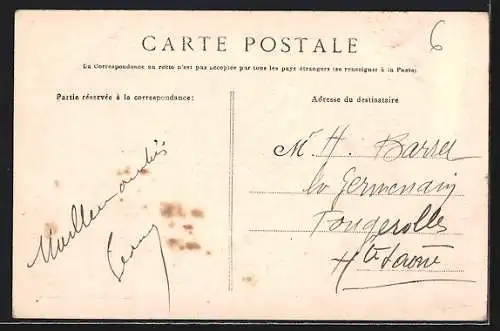 6
CARTE POSTALE
La Correspondance au recto n'est pas acceptée par tous les pays étrangers (se renseigner à la Poste)
Partie réservée à la correspondance:
Adresse du destinataire
Mr H.
Fougerolles
Hte Saône